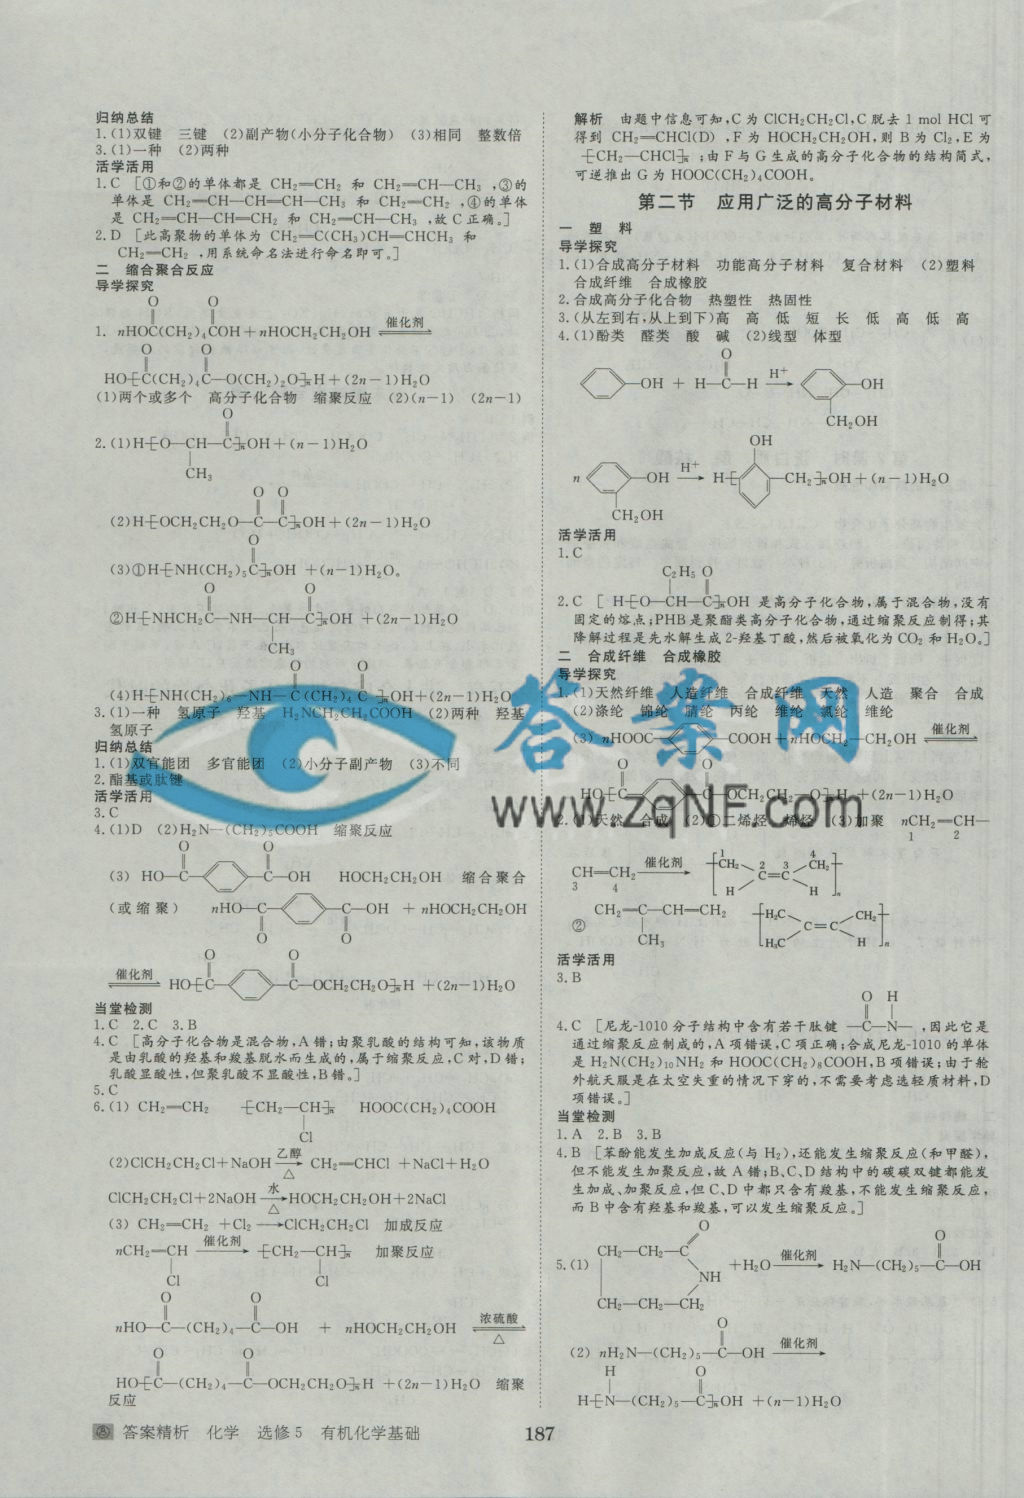 归纳总结
1.(1)双键 三键 (2)副产物(小分子化合物) (3)相同 整数倍
3.(1)一种 (2)两种
活学活用
1.C [①和②的单体都是 CH₂═CH₂ 和 CH₂═CH—CH₃,③的
单体是 CH₂═CH—CH═CH—CH₃ 和 CH₂═CH₂,④的单体
是 CH₂═CH—CH═CH₂ 和 CH₂═CH—CH₃,故C正确。]
2.D [此高聚物的单体为 CH₂═C(CH₃)CH═CHCH₃ 和
CH₂═CH₂,用系统命名法进行命名即可。]
二 缩合聚合反应
导学探究
O O
1. nHOC(CH₂)₄COH+nHOCH₂CH₂OH 催化剂
O O
HO[C(CH₂)₄C—O(CH₂)₂O]ₙH+(2n-1)H₂O
(1)两个或多个 高分子化合物 缩聚反应 (2)(n-1) (2n-1)
O
2.(1)H[O—CH—C]ₙOH+(n-1)H₂O
CH₃
O O
(2)H[OCH₂CH₂O—C—C]ₙOH+(2n-1)H₂O
O
(3)①H[NH(CH₂)₅C]ₙOH +(n-1)H₂O。
O O
②H[NHCH₂C—NH—CH—C]ₙOH +(2n-1)H₂O
CH₃
O O
(4)H[NH(CH₂)₆—NH—C(CH₂)₄C]ₙOH+(2n-1)H₂O
3.(1)一种 氢原子 羟基 H₂NCH₂CH₂COOH (2)两种 羟基
氢原子
归纳总结
1.(1)双官能团 多官能团 (2)小分子副产物 (3)不同
2.酯基或肽键
活学活用
3.C
4.(1)D (2)H₂N—(CH₂)₅COOH 缩聚反应
O O
(3) HO—C—C—OH HOCH₂CH₂OH 缩合聚合
(或缩聚) nHO—C—C—OH +nHOCH₂CH₂OH
O O
O O
催化剂 HO[C—C—OCH₂CH₂O]ₙH +(2n-1)H₂O
当堂检测
1.C 2.C 3.B
4.C [高分子化合物是混合物,A错;由聚乳酸的结构可知,该物质
是由乳酸的羟基和羧基脱水而生成的,属于缩聚反应,C对,D错;
乳酸显酸性,但聚乳酸不显酸性,B错。]
5.C
6.(1) CH₂═CH₂ [CH₂—CH]ₙ HOOC(CH₂)₄COOH
Cl
(2)ClCH₂CH₂Cl+NaOH 乙醇 △ CH₂═CHCl +NaCl+H₂O
ClCH₂CH₂Cl+2NaOH 水 △ HOCH₂CH₂OH+2NaCl
(3) CH₂═CH₂ +Cl₂ ⟶ClCH₂CH₂Cl 加成反应
nCH₂═CH 催化剂 [CH₂—CH]ₙ 加聚反应
Cl Cl
O O
nHO—C—(CH₂)₄—C—OH + nHOCH₂CH₂OH 浓硫酸 △
O O
HO[C—(CH₂)₄—C—OCH₂CH₂O]ₙH +(2n-1)H₂O 缩聚
反应
解析 由题中信息可知,C为ClCH₂CH₂Cl,C脱去1 mol HCl可
得到 CH₂═CHCl(D),F为HOCH₂CH₂OH,则B为Cl₂,E为
[CH₂—CHCl]ₙ;由F与G生成的高分子化合物的结构简式,
可逆推出G为HOOC(CH₂)₄COOH。
第二节 应用广泛的高分子材料
一 塑 料
导学探究
1.(1)合成高分子材料 功能高分子材料 复合材料 (2)塑料
合成纤维 合成橡胶
2.合成高分子化合物 热塑性 热固性
3.(从左到右,从上到下)高 高 低 短 长 低 高 低 高
4.(1)酚类 醛类 酸 碱 (2)线型 体型
O
—OH + H—C—H H⁺ —OH
CH₂OH
OH
n —OH H⁺ H[—CH₂]ₙOH+(n-1)H₂O
CH₂OH
活学活用
1.C
C₂H₅ O
2.C [ H[O—CH—C]ₙOH 是高分子化合物,属于混合物,没有
固定的熔点;PHB是聚酯类高分子化合物,通过缩聚反应制得;其
降解过程是先水解生成2-羟基丁酸,然后被氧化为CO₂和H₂O。]
二 合成纤维 合成橡胶
导学探究
1.(1)天然纤维 人造纤维 合成纤维 天然 人造 聚合 合成
(2)涤纶 锦纶 腈纶 丙纶 维纶 氯纶 维纶
(3) nHOOC—COOH+nHOCH₂—CH₂OH 催化剂
O O
HO[C—C—OCH₂CH₂—O]ₙH +(2n-1)H₂O
2.(1)天然 合成 (2)①二烯烃 烯烃 (3)加聚 nCH₂═CH—
1 2
CH═CH₂ 催化剂 [CH₂ C═C CH₂]ₙ
3 4 1 2 3 4 H H
② CH₂═C—CH═CH₂ [H₂C C═C CH₂]ₙ
CH₃ H₃C H
活学活用
3.B
O H
4.C [尼龙-1010分子结构中含有若干肽键 —C—N—,因此它是
通过缩聚反应制成的,A项错误,C项正确;合成尼龙-1010的单体
是H₂N(CH₂)₁₀NH₂和HOOC(CH₂)₈COOH,B项错误;由于舱
外航天服是在太空失重的情况下穿的,不需要考虑选轻质材料,D
项错误。]
当堂检测
1.A 2.B 3.B
4.B [苯酚能发生加成反应(与H₂),还能发生缩聚反应(和甲醛),
但不能发生加聚反应,故A错;B、C、D结构中的碳碳双键都能发
生加成、加聚反应,但C、D中都只含有羧基,不能发生缩聚反应,
而B中含有羟基和羧基,可以发生缩聚反应。]
O O
5.(1) CH₂—CH₂—C NH CH₂—CH₂—CH₂ +H₂O 催化剂 H₂N—(CH₂)₅—C—OH
O
(2) nH₂N—(CH₂)₅—C—OH 催化剂
H O
H[N—(CH₂)₅—C]ₙOH +(n-1)H₂O
答案网
www.zqNF.com
答案精析 化学 选修5 有机化学基础
187